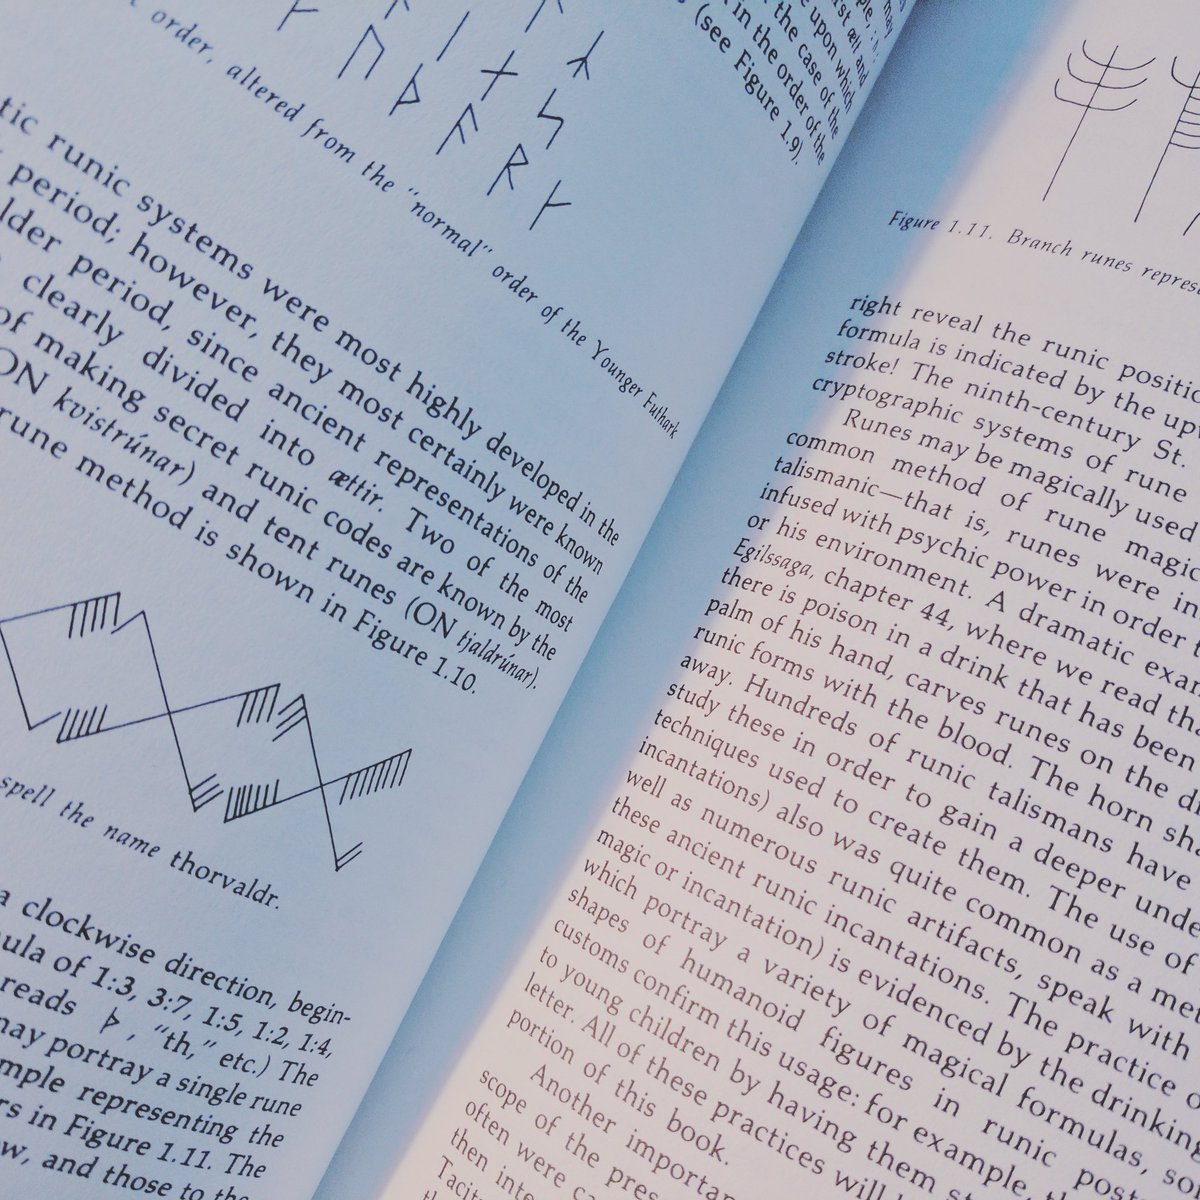 may
ple,
first ætt and
be upon which
the case of the
in the order of the
(see Figure 1.9).
ᚢ ᛁ ᛅ ᛦ
ᚦ ᚬ ᚱ ᚴ ᛋ
order, altered from the "normal" order of the Younger Futhark
tic runic systems were most highly developed in the
period; however, they most certainly were known
lder period, since ancient representations of the
clearly divided into ættir. Two of the most
of making secret runic codes are known by the
ON kvistrúnar) and tent runes (ON tjaldrúnar).
rune method is shown in Figure 1.10.
spell the name thorvaldr.
a clockwise direction, begin-
ula of 1:3, 3:7, 1:5, 1:2, 1:4,
reads ᚦ, "th," etc.) The
may portray a single rune
mple representing the
rs in Figure 1.11. The
ow, and those to the
Figure 1.11. Branch runes represe
right reveal the runic positio
formula is indicated by the upw
stroke! The ninth-century St.
cryptographic systems of rune
Runes may be magically used
common method of rune magic
talismanic—that is, runes were in
infused with psychic power in order t
or his environment. A dramatic exa
Egilssaga, chapter 44, where we read tha
there is poison in a drink that has been
palm of his hand, carves runes on the d
runic forms with the blood. The horn sha
away. Hundreds of runic talismans have
study these in order to gain a deeper unde
techniques used to create them. The use of
incantations) also was quite common as a met
well as numerous runic artifacts, speak with
these ancient runic incantations. The practice o
magic or incantation) is evidenced by the drinking
which portray a variety of magical formulas, so
shapes of humanoid figures in runic post
customs confirm this usage: for example, th
to young children by having them st
letter. All of these practices will
portion of this book.
Another importan
scope of the pres
often were ca
then inte
Tacit